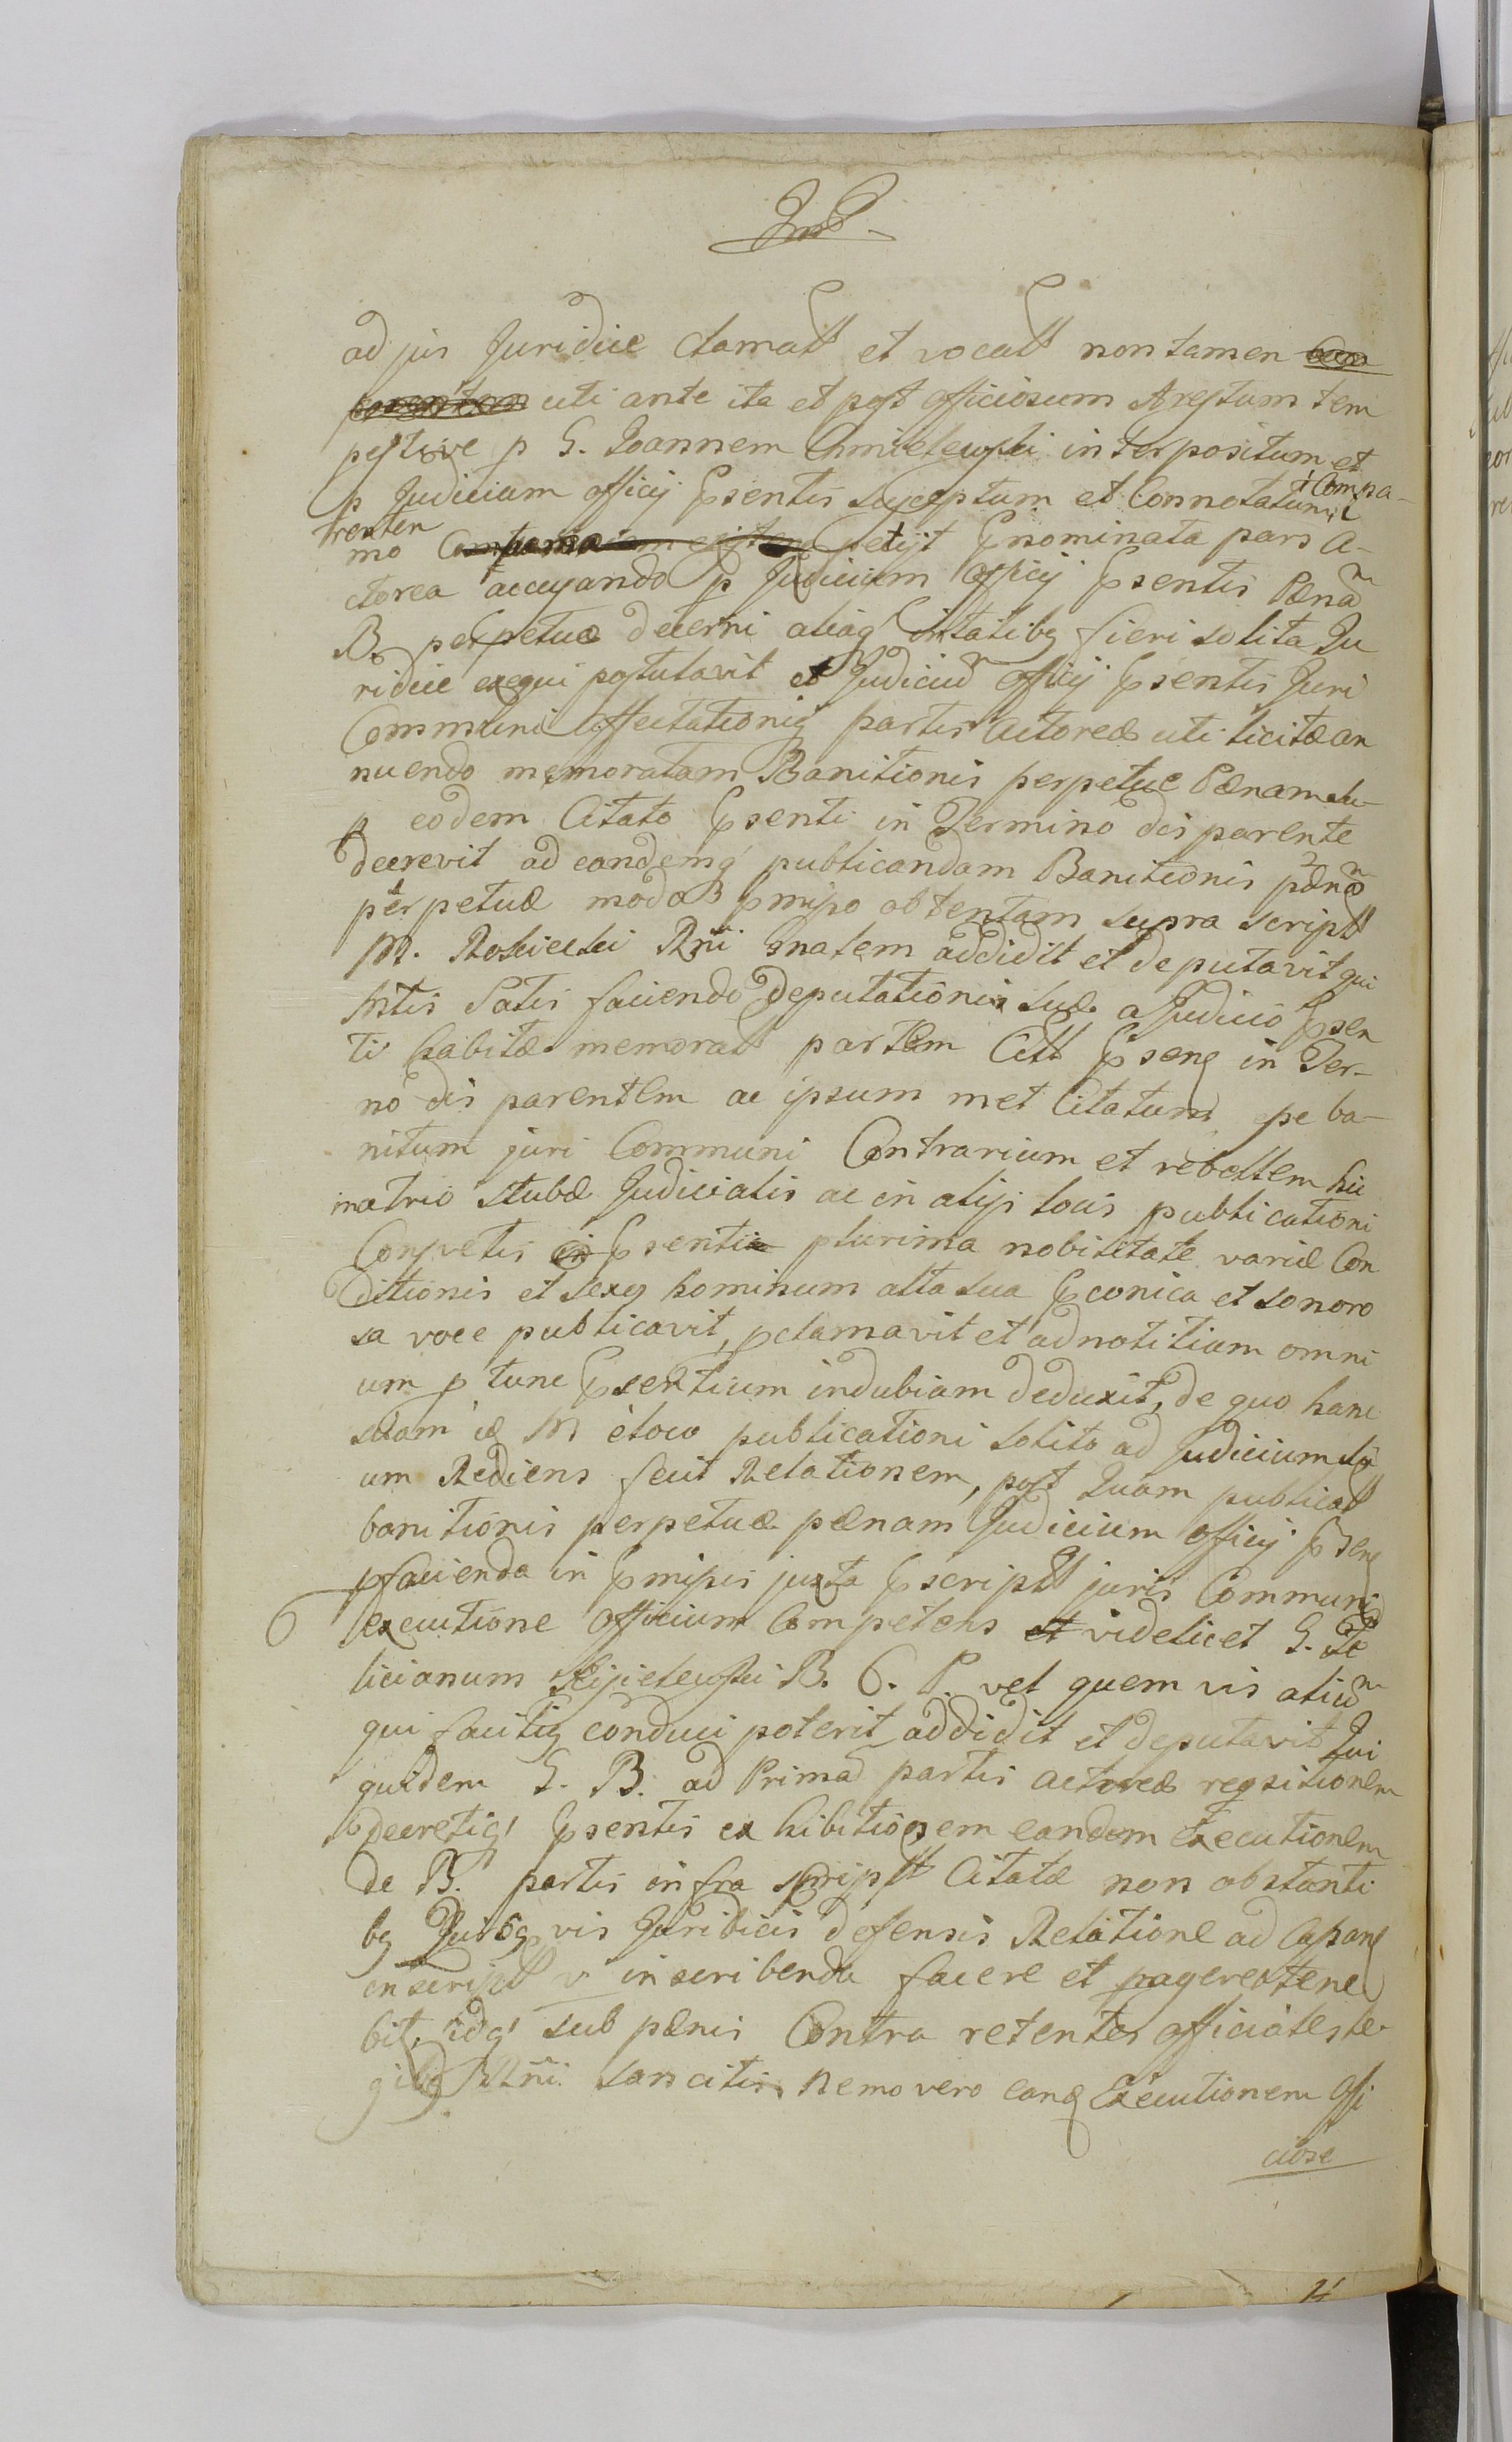 ad jus Juridice clamatt et vocatt non tamen
uti ante ita et post officiosum Arestum tem
pestive p G. Joannem Chmielewski interpositum et
p Judicium officij Psentis susceptum et Connotatum Compa-
renten
mo petijt Pnominata pars A-
ctorea accusando p Judicium Officij Psentis Pœnã
B. perpetuæ decerni aliaq' in talibq fieri solita Ju
ridice exequi postulavit et Judiciũ officij Psentis Juri
Communi affectationiq partis Actoreæ uti licitæ an
nuendo memoratam Banitionis perpetuæ Pœnam su-
p eodem Citato Psenti in Termino dis parente
decrevit ad eandemq' publicandam Banitionis pœnã
perpetuæ modo Pmiso obtentam supra scriptt
M. Rosciecki Rni Gnalem addidit et deputavit qui
Mtis Satis faciendo Deputationis suæ a Judicio Psen
ti habitæ memoratt partem Citt Psenq in Ter-
no dis parentem ac ipsum met Citatum, epe ba-
nitum juri Communi Contrarium et rebellem hic
in atrio stubæ Judicialis ac in alijs locis publicationi
Consvetis Psenti plurima nobilitate variæ Con
ditionis et sexq hominum alta sua Pconica et sonoro
sa voce publicavit, pclamavit et ad notitiam omni
um p tunc Psentium indubiam deduxit, de quo hanc
solam M è loco publicationi solito ad Judicium
um Rediens fecit Relationem, post Quam publicatt
banitionis perpetuæ pœnam Judicium officij Psenq
pfacienda in Pmisis juxta Pscriptt juris Communi
executione Officium Competens videlicet G. Fe
licianum B. C. P. vel quem vis aliũ
qui facilig conduci poterit addidit et deputavit Qui
quidem G. B. ad Primã partis actoreæ reqsitionem
Decretiq' Psentis ex hibitionem eandem Executionem
de B. partis infra scriptt Citatæ non obstanti
bq Quibq vis Juridicis defensis Relatione ad
inscribenda facere et tene
bit, idq' sub pœnis Contra retentes officia
gibq Rni sancitis. Nemo vero eanq Executionem Offi
ciose